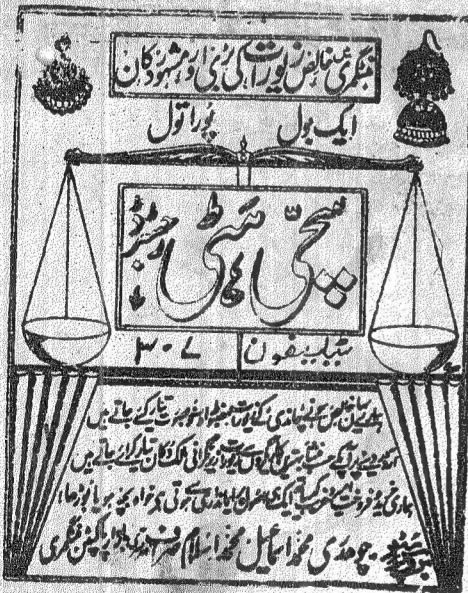 منٹگمری میں خالص زیورات کی بڑی اور مشہور دکان
ایک بول پورا تول
سچی ہٹی رجسٹرڈ
ٹیلیفون ۳۰۷
ہمارے ہاں خالص سونے چاندی کے زیورات تیار کئے جاتے ہیں
آرڈر دینے پر آپکے حسب منشا بہترین کاریگروں سے زیر نگرانی مالک دکان تیار کرائے جاتے ہیں
ہماری خرید و فروخت ایک ہی اصول ایمانداری سے ہوتی ہے خواہ بچہ ہو یا بوڑھا
چوہدری محمد اسماعیل محمد اسلام صراف صدر بازار پاکپتن منٹگمری